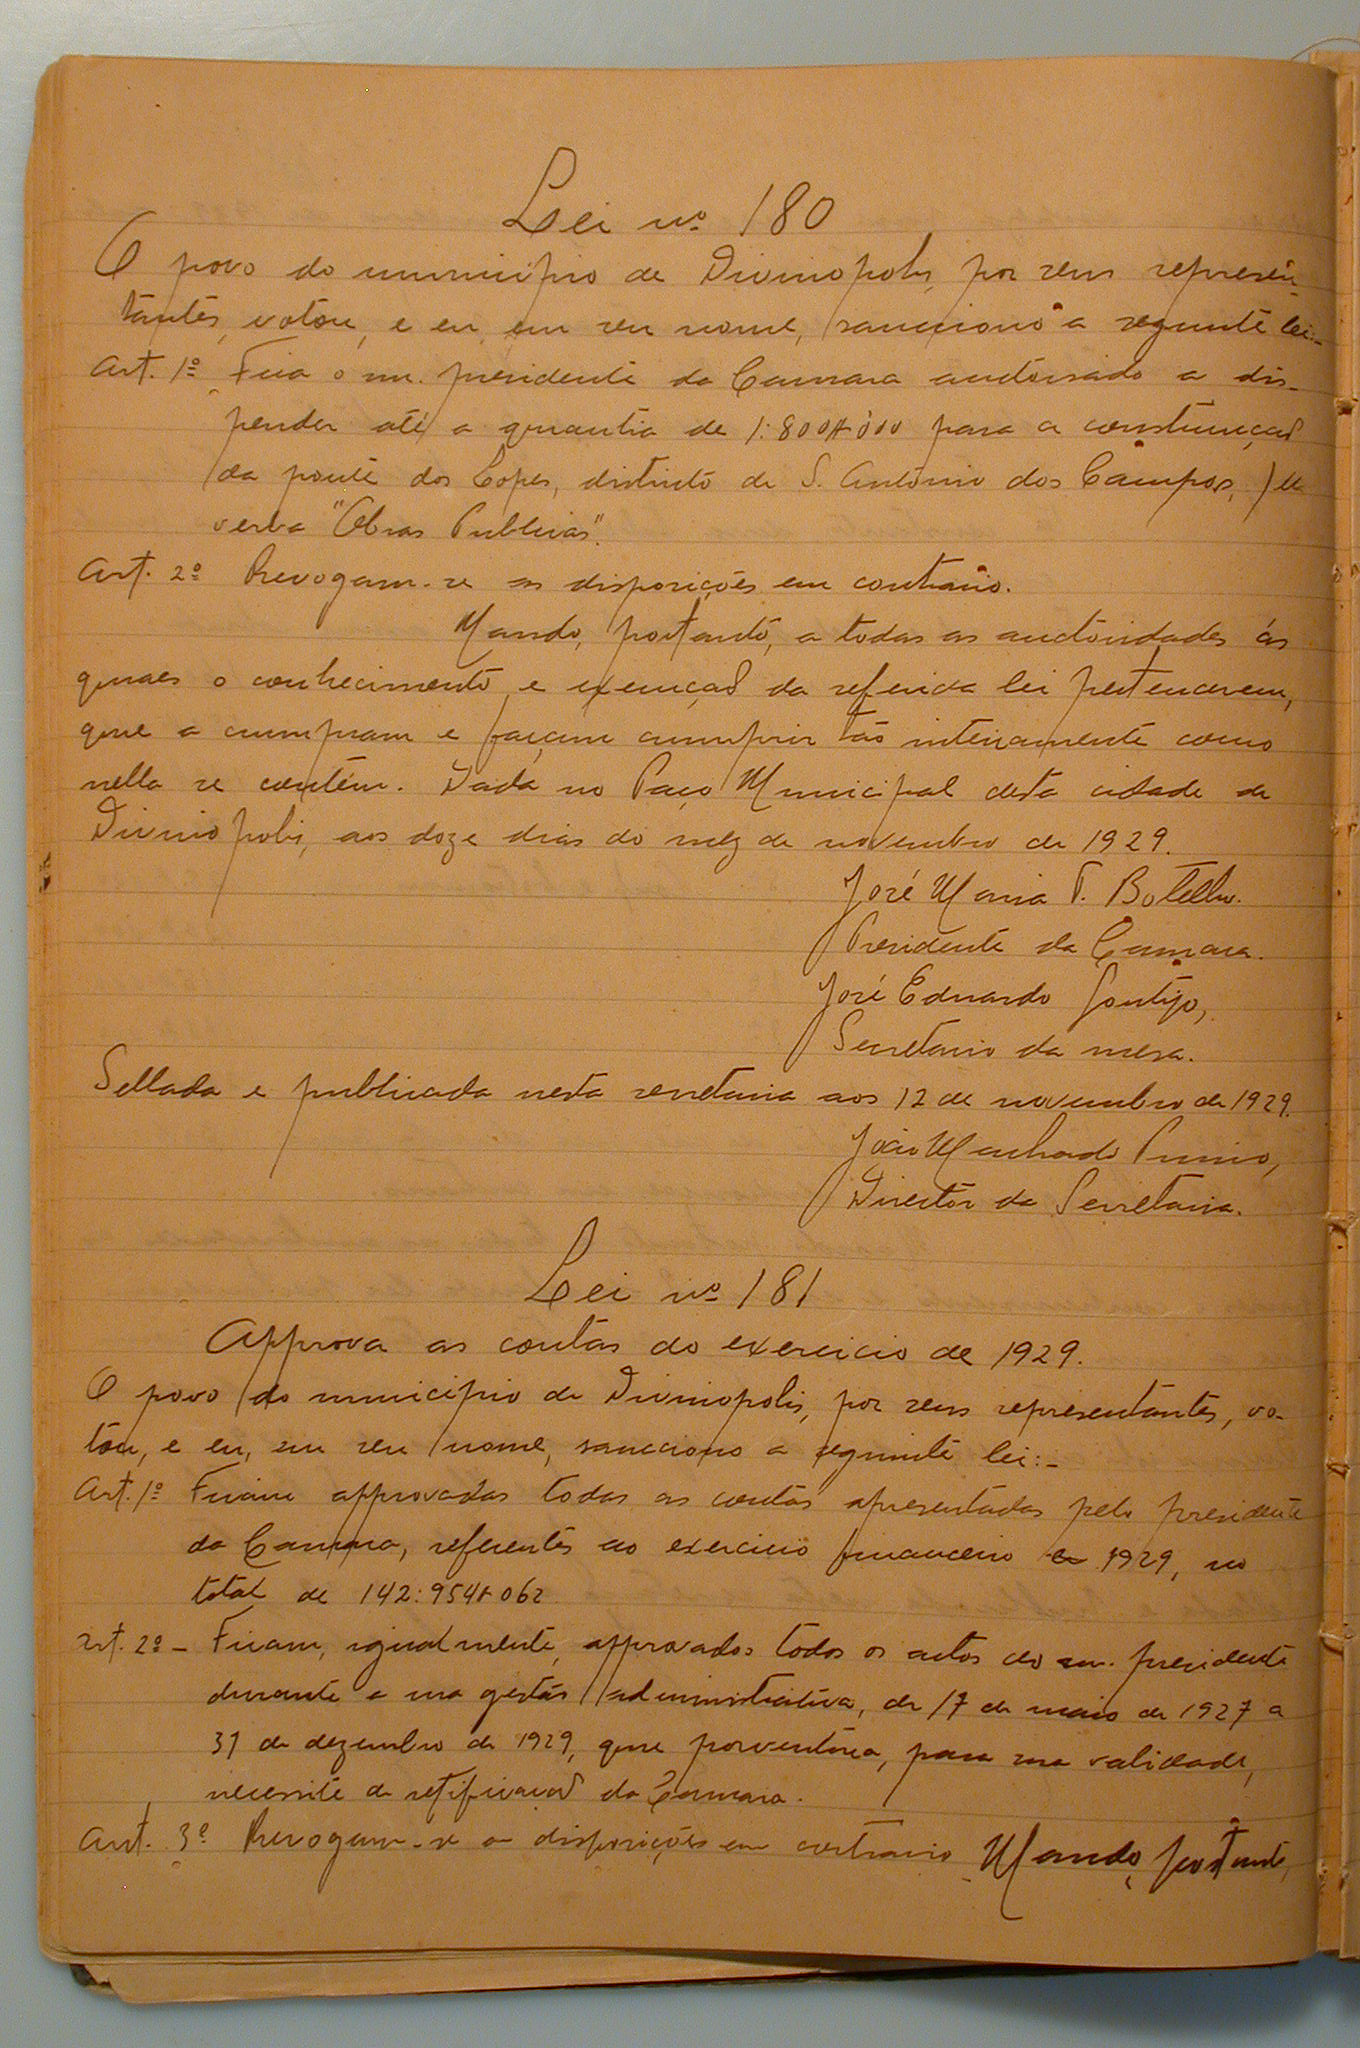 Lei nº 180
O povo do municipio de Divinopolis, por seus represen-
tantes, votou, e eu, em seu nome, sancciono a seguinte lei:-
Art. 1º Fica o snr. presidente da Camara auctorisado a dis-
pender até a quantia de 1:800$000 para a construcção
da ponte dos Lopes, districto de S. Antonio dos Campos,
verba "Obras Publicas".
Art. 2º Revogam-se as disposições em contrario.
Mando, portanto, a todas as auctoridades ás
quaes o conhecimento e execução da referida lei pertencerem,
que a cumpram e façam cumprir tão inteiramente como
nella se contém. Dada no Paço Municipal desta cidade de
Divinopolis, aos doze dias do mez de novembro de 1929.
José Maria P. Botelho.
Presidente da Camara.
José Eduardo Gontijo,
Secretario da mesa.
Sellada e publicada nesta secretaria aos 12 de novembro de 1929.
João Machado
Director da Secretaria.
Lei nº 181
Approva as contas do exercicio de 1929.
O povo do municipio de Divinopolis, por seus representantes, vo-
tou, e eu, em seu nome, sancciono a seguinte lei:-
Art. 1º Ficam approvadas todas as contas apresentadas pelo presidente
da Camara, referentes ao exercicio financeiro de 1929, no
total de 142:954$062
Art. 2º - Ficam, igualmente, approvados todos os actos do snr. presidente
durante a sua gestão administrativa, de 17 de maio de 1927 a
31 de dezembro de 1929, que porventura, para sua validade,
necessite de retificação da Camara.
Art. 3º Revogam-se as disposições em contrario Mando, portanto,